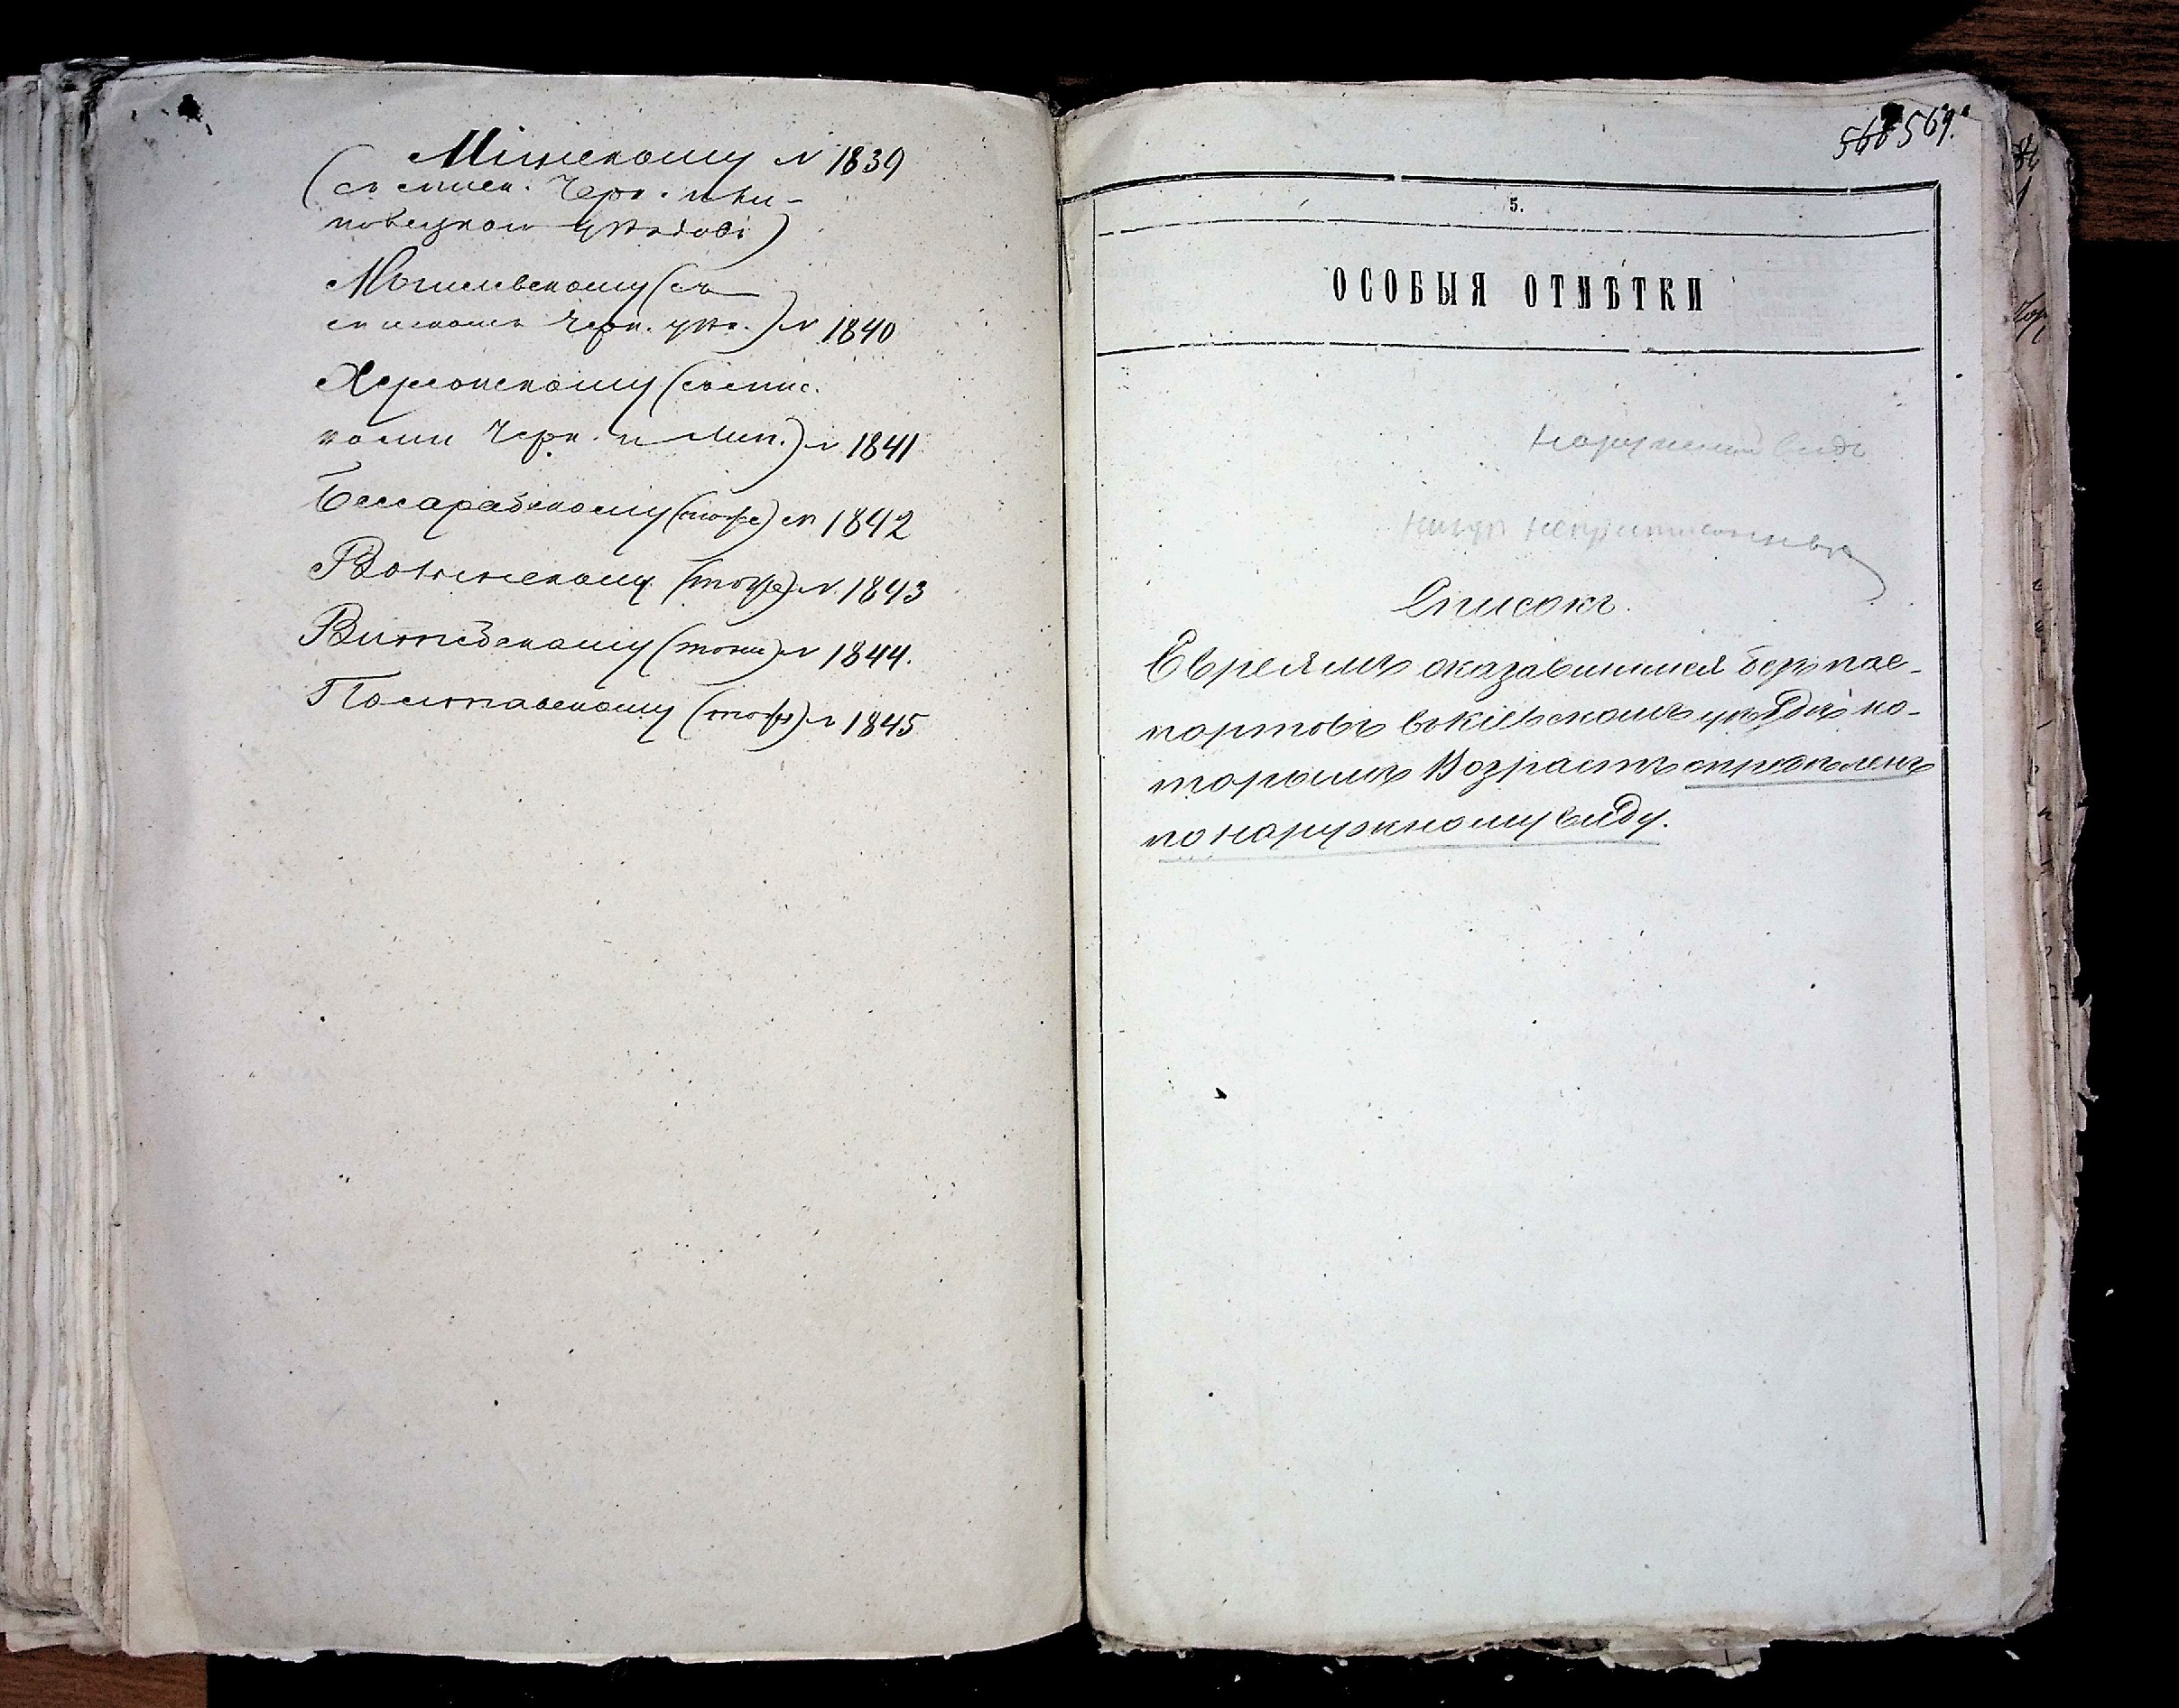 Мінскому № 1839
(съ списк. Черк. и Ли-
повецкого уѣздовъ)
Могилевскому (съ
спискомъ Черк. уѣз.) № 1840
Херсонскому (съ спис.
ками Черк. и Лип.) № 1841
Бессарабскому (тоже) № 1842
Волынскому (тоже) № 1843
Витебскому (тоже) № 1844.
Полтавскому (тоже) № 1845
568 569.
5.
ОСОБЫЯ ОТМѢТКИ
наружный видъ
Списокъ.
Евреямъ оказавшимся безъ пас-
портовъ въ Кіевскомъ уѣздѣ ко-
торымъ Возрастъ опредѣленъ
по наружному виду.